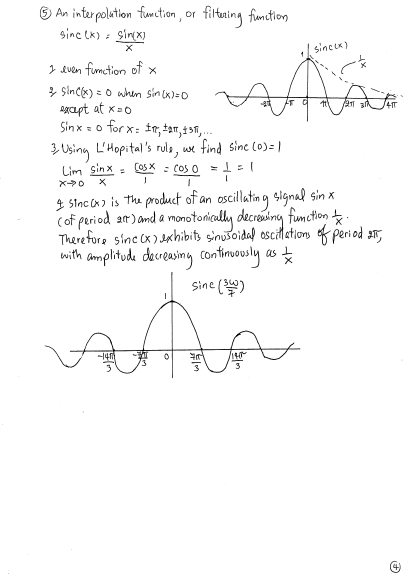 ⑤ An interpolation function, or filtering function
sinc(x) = sin(x)/x
1. even function of x
2. sinc(x) = 0 when sin(x)=0
except at x=0
sin x = 0 for x = ±π, ±2π, ±3π, ...
3. Using L'Hopital's rule, we find sinc(0)=1
Lim x→0 sin x/x = cos x/1 = cos 0/1 = 1/1 = 1
4. sinc(x) is the product of an oscillating signal sin x
(of period 2π) and a monotonically decreasing function 1/x.
Therefore sinc(x) exhibits sinusoidal oscillations of period 2π,
with amplitude decreasing continuously as 1/x
sinc(x)
1
1/x
-2π -π 0 π 2π 3π 4π
sinc(3ω/7)
1
-14π/3 -7π/3 0 7π/3 14π/3
④